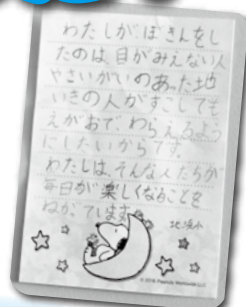 わたしが、ぼきんをし
たのは、目がみえない人
やさいがいのあった地
いきの人がすこしでも
えがおで、わらえるよう
にしたいからです。
わたしは、そんな人たちが
毎日が楽しくなることを
ねがっています。
© 2016 Peanuts Worldwide LLC